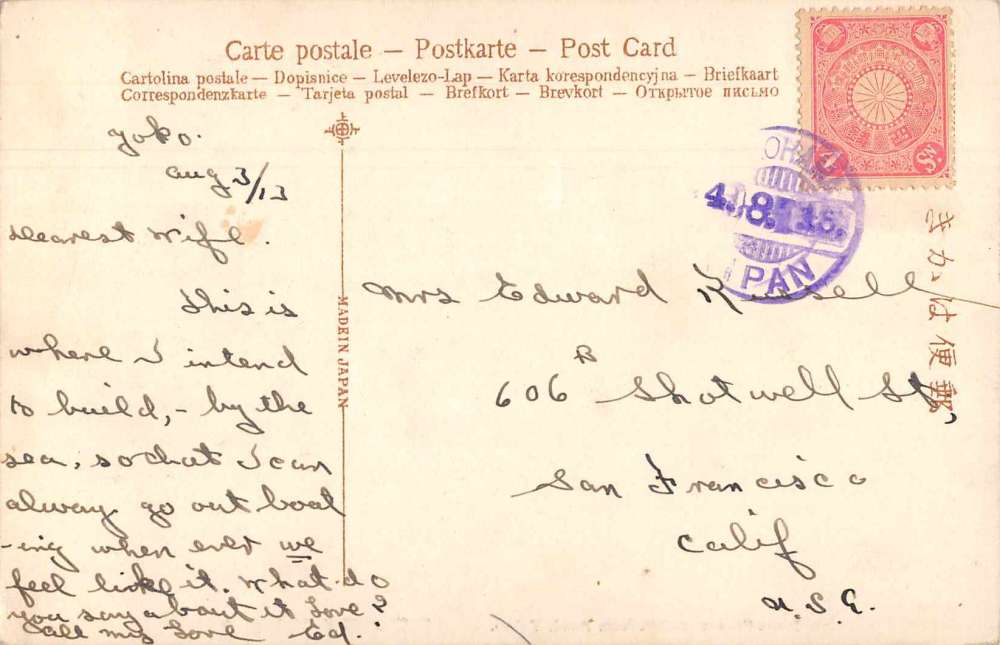 Carte postale — Postkarte — Post Card
Cartolina postale — Dopisnice — Levelezo-Lap — Karta korespondencyjna — Briefkaart
Correspondenzkarte — Tarjeta postal — Brefkort — Brevkort — Открытое письмо
4 Sn
OHAMA
4. 8. 13.
PAN
きかは便郵
MADE IN JAPAN
Yoko.
Aug 3/13
Dearest Wife.
This is
where I intend
to build, - by the
sea, so that I can
alway go out boat
-ing when ever we
feel like it. What do
you say about it Love?
all my Love Ed.
Mrs Edward Russell
606 B Shotwell St,
San Francisco
Calif
U.S.A.